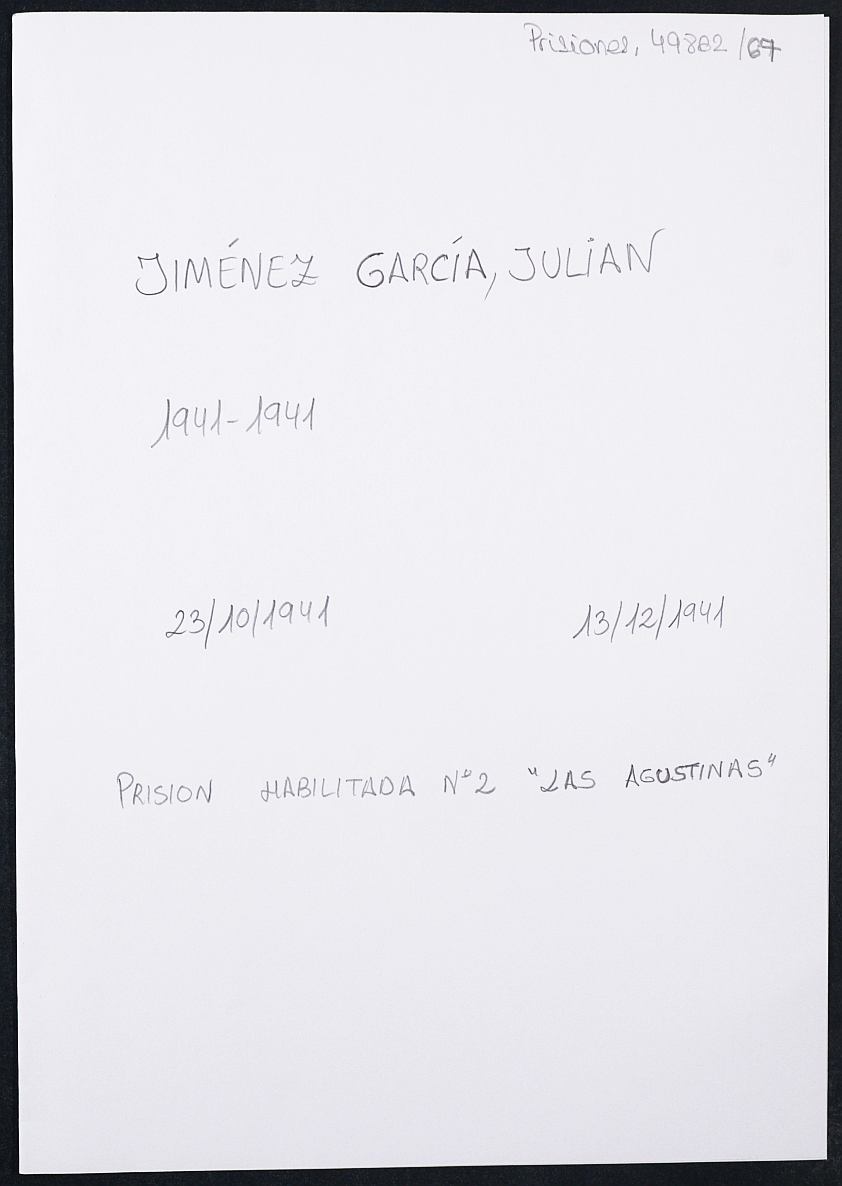 Prisiones, 49882/67
JIMÉNEZ GARCÍA, JULIAN
1941-1941
23/10/1941 13/12/1941
PRISION HABILITADA Nº2 "LAS AGUSTINAS"